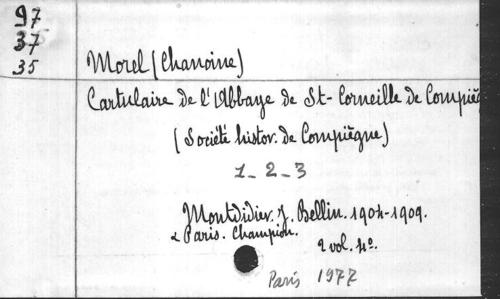 97
37
35
Morel (Chanoine)
Cartulaire de l'Abbaye de St-Corneille de Compièg
(Société histor. de Compiègne)
1-2-3
Montdidier. J. Bellin. 1904-1909.
& Paris. Champion.
2 vol. 4º.
Paris 1977